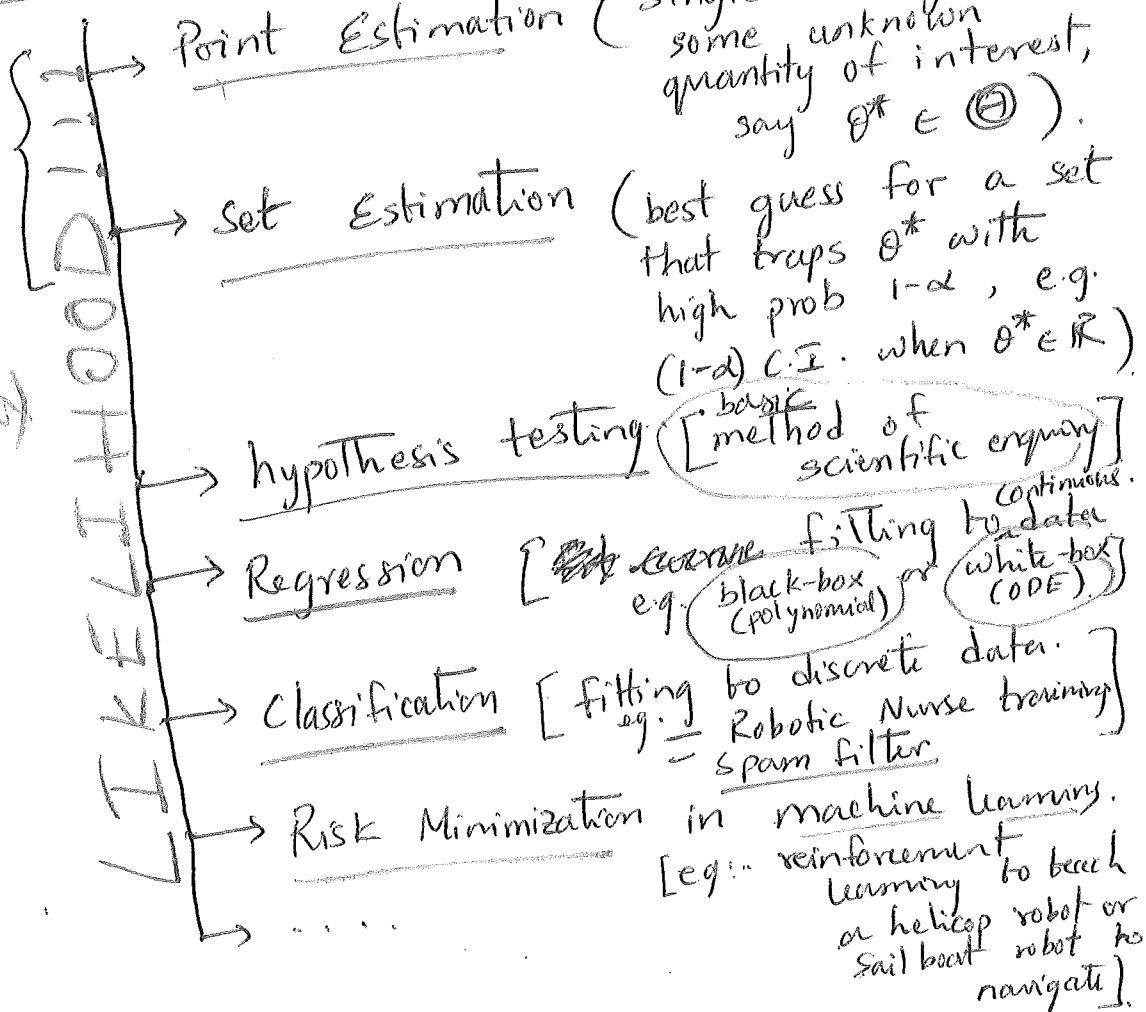 Point Estimation (
some unknown
quantity of interest,
say θ* ∈ Θ ).
Set Estimation (best guess for a set
that traps θ* with
high prob 1-α , e.g.
(1-α) C.I. when θ* ∈ ℝ)
hypothesis testing [basic method of
scientific enquiry]
Regression [ fitting to continuous data
e.g. black-box or white-box
(polynomial) (ODE) ]
Classification [ fitting to discrete data.
eg. Robotic Nurse training]
spam filter
Risk Minimization in machine learning.
[eg:- reinforcement
learning to teach
a helicop robot or
sail boat robot to
navigate].
. . . .
LIKELIHOOD